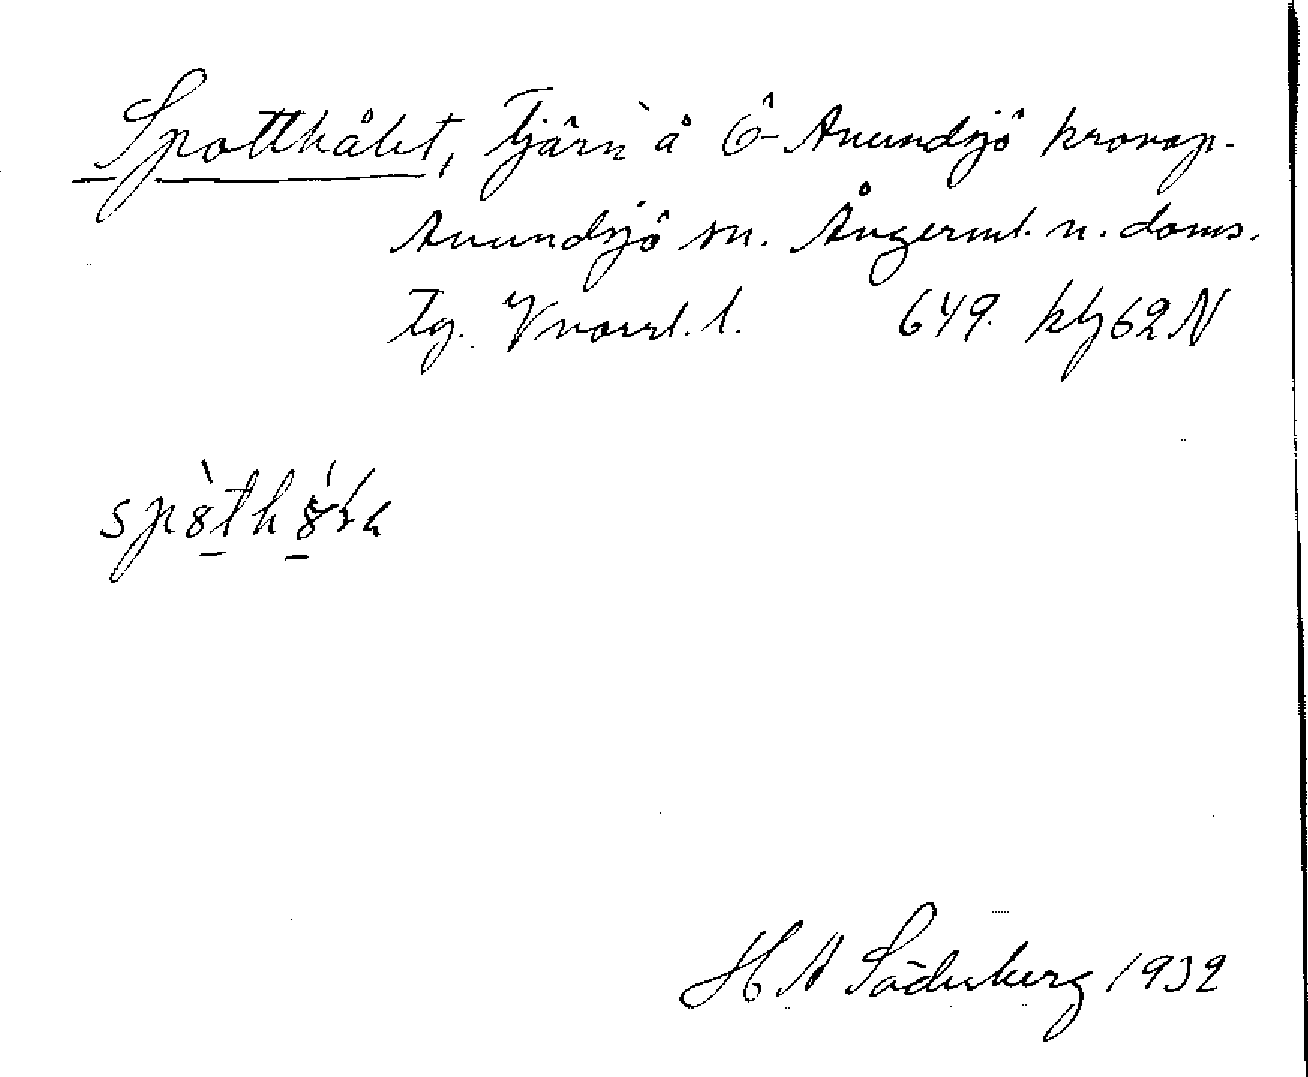 Spotthålet, Tjärn å Ö-Anundsjö kronop.
Anundsjö sn. Ångerml. n. doms.
Tg. Vnorrl. l. 649. kbl 62 N
H A Söderberg 1932